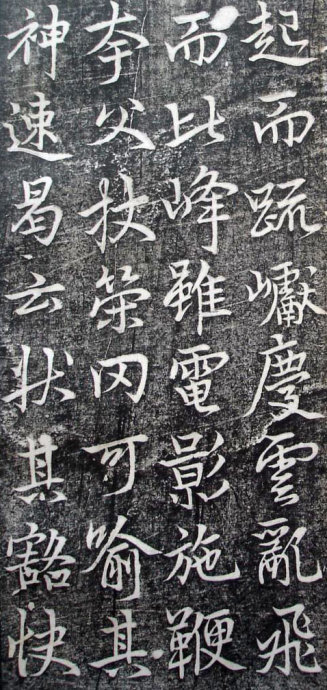 起而疏巘慶雲亂飛
而比峰雖電影施鞭
夸父杖策罔可喻其
神速曷云狀其豁快